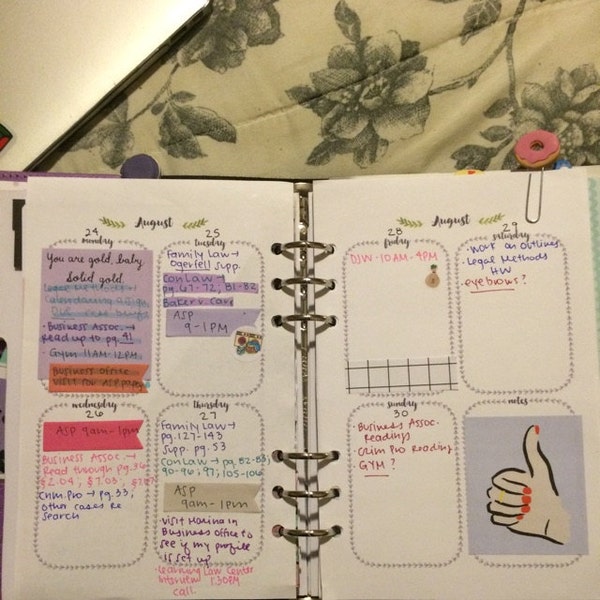 August
24
monday
You are gold, baby
Solid gold.
• Business Assoc. →
Read up to pg. 41
Gym 11AM-12PM
Business Office
25
tuesday
Family Law →
Supp.
Con Law →
pg. 67-72; 81-82
Baker v. Carr
ASP
9-1PM
wednesday
26
ASP 9am-1pm
Business Assoc. →
Read through pg. 36
§ 2.04, § 7.03,
Crim. Pro → pg. 33;
other cases Re
Search
thursday
27
Family Law →
pg. 127-143
Supp. pg. 53
Con Law → pg. 82-83;
90-96; 97; 105-106
ASP
9am-1pm
Visit Marina in
Business Office to
see if my profile
is set up
• Learning Law Center
Interview 1:30PM
call
August
28
friday
DJW · 10AM-4PM
29
saturday
• Work on Outlines
• Legal Methods
HW
• eyebrows?
sunday
30
• Business Assoc.
Readings
• Crim Pro Reading
GYM?
notes